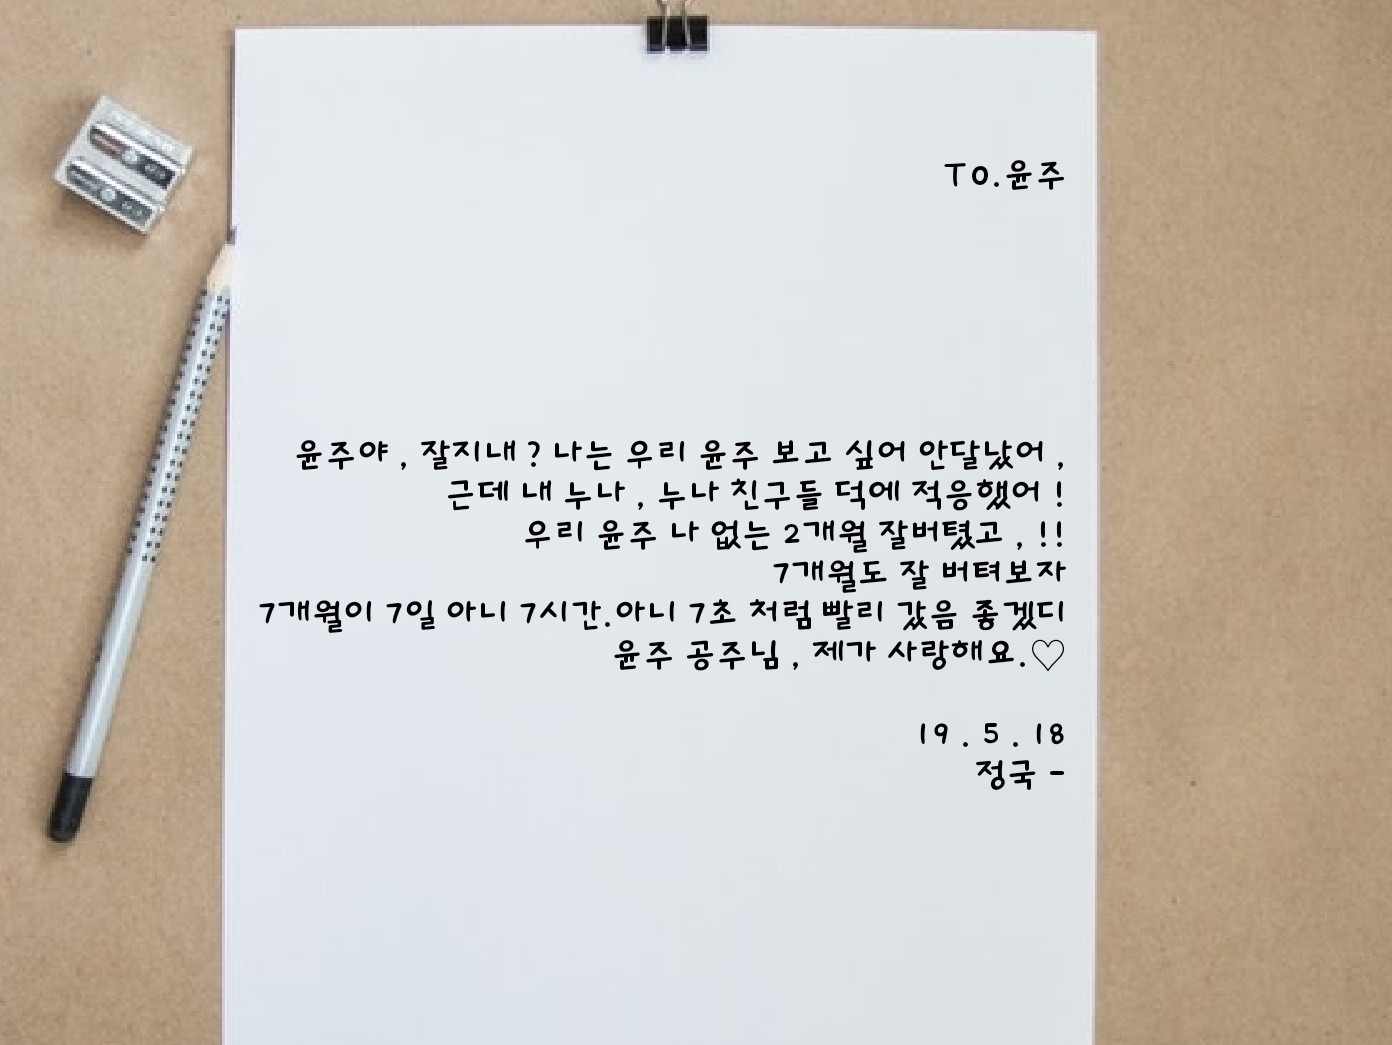 TO.윤주
윤주야 , 잘지내 ? 나는 우리 윤주 보고 싶어 안달났어 ,
근데 내 누나 , 누나 친구들 덕에 적응했어 !
우리 윤주 나 없는 2개월 잘버텼고 , !!
7개월도 잘 버텨보자
7개월이 7일 아니 7시간.아니 7초 처럼 빨리 갔음 좋겠디
윤주 공주님 , 제가 사랑해요.♡
19 . 5 . 18
정국 -